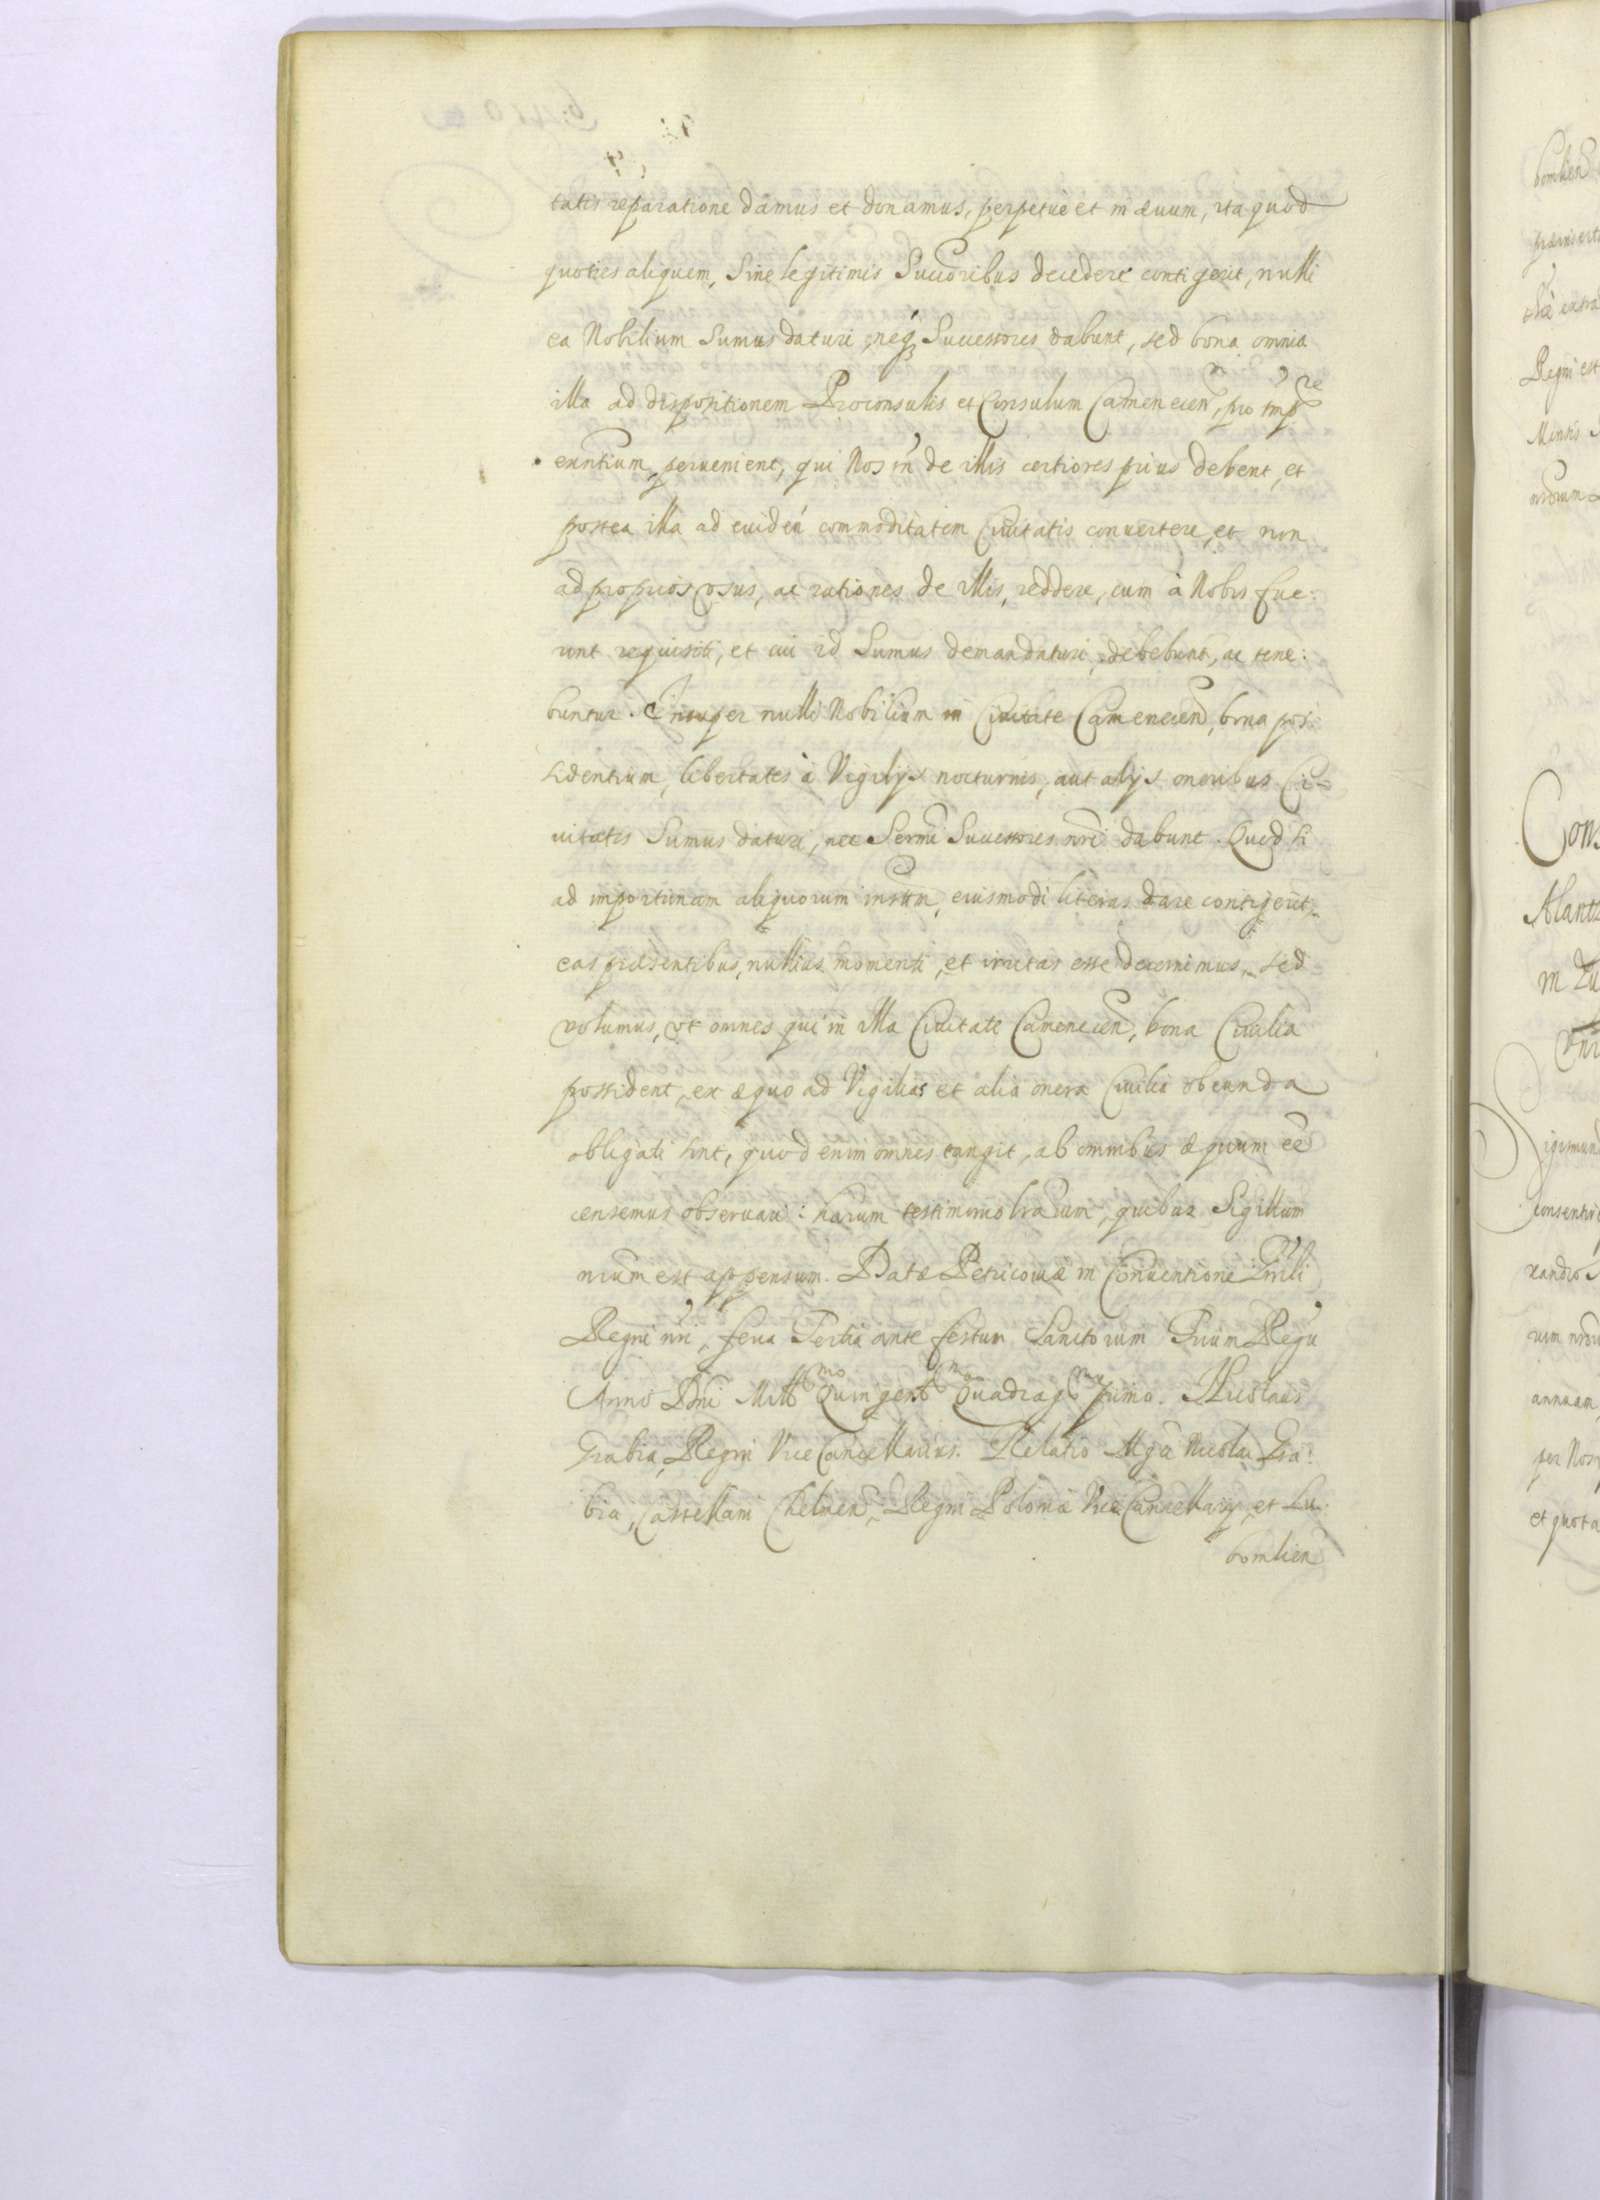 tatis reparatione damus et donamus, perpetuè et in æuum, ita quod
quoties aliquem, Sine legitimis Succoribus decedere contigerit, nulli
ea Nobilium Sumus daturi, neq3 Successores dabunt, sed bona omnia
illa ad dispositionem Proconsulis et Consulum Camenecen, pro tmpre
exntium, peruenient, qui Nos tn de illis certiores prius debent, et
postea illa ad euiden commoditatem Ciuitatis conuertere, et non
ad proprios vsus, ac rationes de illis, reddere, cum à Nobis fue:
rint requisiti, et cui id Sumus demandaturi, debebunt, ac tene:
buntur. Insuper nulli Nobilium in Ciuitate Camenecen, bona pos:
sidentium, libertates à Vigilijs nocturnis, aut alijs oneribus Ci-
uitatis Sumus daturi, nec Sermi Successores nri dabunt. Quod si
ad importunam aliquorum instm, eiusmodi literas dare contigerit,
eas præsentibus, nullius momenti, et irritas esse decernimus, sed
volumus, vt omnes qui in illa Ciuitate Camenecen, bona Ciuilia
possident, ex æquo ad Vigilias et alia onera Ciuilia obeunda
obligati sint, quod enim omnes tangit, ab omnibus æquum ee
censemus obseruari: harum testimonio lraum, quibus Sigillum
nrum est appensum. Datæ Petricouiæ in Conuentione Gnrli
Regni nri, feria Tertia ante festum Sanctorum Trium Regu
Anno Dni Mill̃mo Quingentmo Quadragmo primo. Nicolaus
Grabia, Regni Vice Cancellarius. Relatio Mgci Nicolai Gra:
bia, Castellani Chelmen, Regni Poloniæ Vice Cancellarij, et Lu:
bomlien